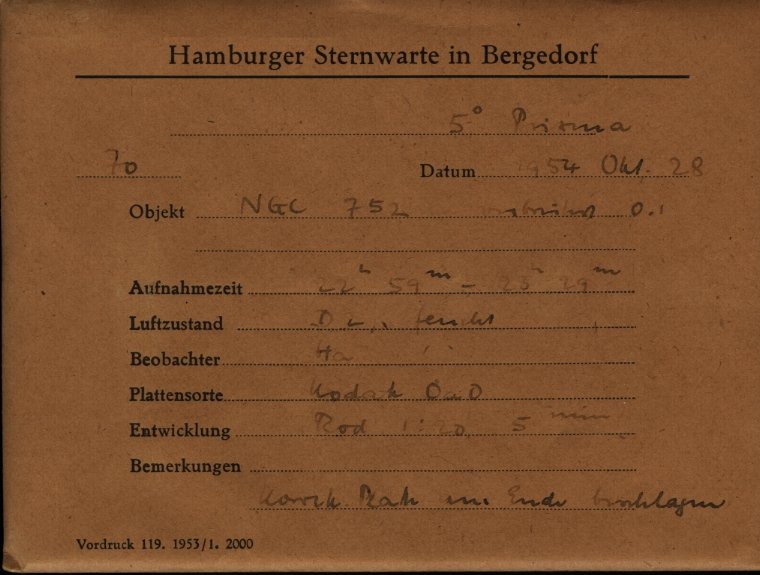 Hamburger Sternwarte in Bergedorf
5° Prisma
70 Datum 1954 Okt. 28
Objekt NGC 752 0.1
Aufnahmezeit 22ʰ 59ᵐ – 23ʰ 29ᵐ
Luftzustand feucht
Beobachter Ha
Plattensorte Kodak OaO
Entwicklung Rod 1:20, 5 min
Bemerkungen
Platte am Ende beschlagen
Vordruck 119. 1953/1. 2000